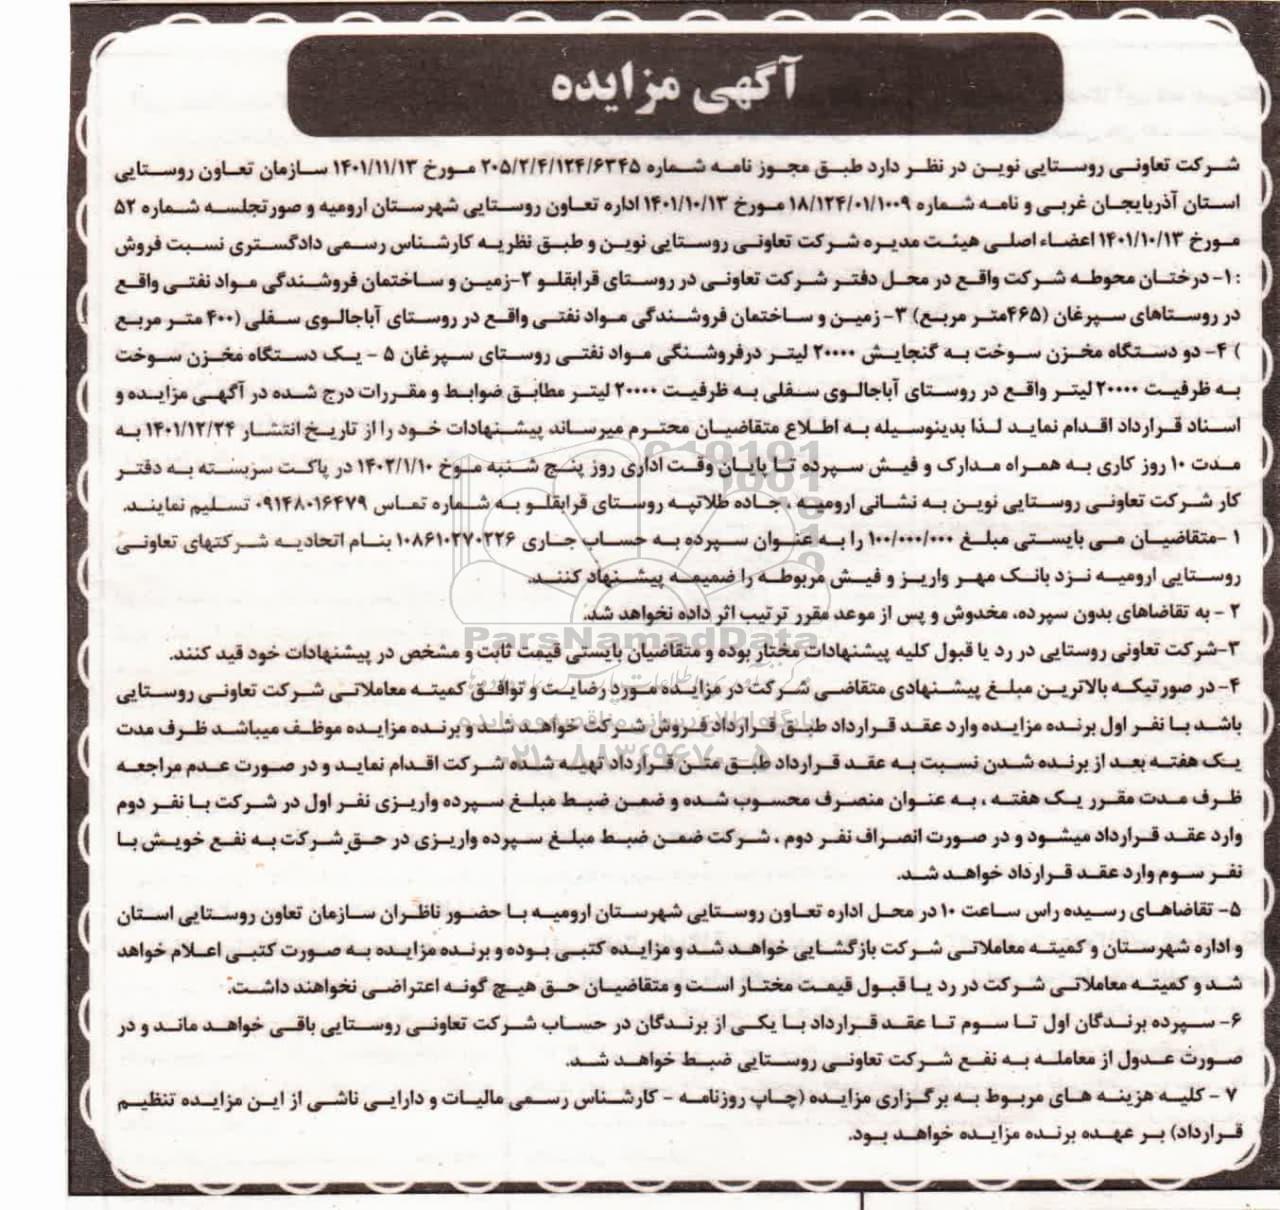 آگهی مزایده
شرکت تعاونی روستایی نوین در نظر دارد طبق مجوز نامه شماره ۲۰۵/۲/۴/۱۲۴/۶۳۴۵ مورخ ۱۴۰۱/۱۱/۱۳ سازمان تعاون روستایی
استان آذربایجان غربی و نامه شماره ۱۸/۱۲۴/۰۱/۱۰۰۹ مورخ ۱۴۰۱/۱۰/۱۳ اداره تعاون روستایی شهرستان ارومیه و صورتجلسه شماره ۵۲
مورخ ۱۴۰۱/۱۰/۱۳ اعضاء اصلی هیئت مدیره شرکت تعاونی روستایی نوین و طبق نظریه کارشناس رسمی دادگستری نسبت فروش
:۱- درختان محوطه شرکت واقع در محل دفتر شرکت تعاونی در روستای قرابقلو ۲-زمین و ساختمان فروشندگی مواد نفتی واقع
در روستاهای سپرغان (۴۶۵متر مربع) ۳- زمین و ساختمان فروشندگی مواد نفتی واقع در روستای آباجالوی سفلی (۴۰۰ متر مربع
) ۴- دو دستگاه مخزن سوخت به گنجایش ۲۰۰۰۰ لیتر درفروشنگی مواد نفتی روستای سپرغان ۵ - یک دستگاه مخزن سوخت
به ظرفیت ۲۰۰۰۰ لیتر واقع در روستای آباجالوی سفلی به ظرفیت ۲۰۰۰۰ لیتر مطابق ضوابط و مقررات درج شده در آگهی مزایده و
اسناد قرارداد اقدام نماید لذا بدینوسیله به اطلاع متقاضیان محترم میرساند پیشنهادات خود را از تاریخ انتشار ۱۴۰۱/۱۲/۲۴ به
مدت ۱۰ روز کاری به همراه مدارک و فیش سپرده تا پایان وقت اداری روز پنج شنبه موخ ۱۴۰۲/۱/۱۰ در پاکت سربسته به دفتر
کار شرکت تعاونی روستایی نوین به نشانی ارومیه ، جاده طلاتپه روستای قرابقلو به شماره تماس ۰۹۱۴۸۰۱۶۴۷۹ تسلیم نمایند.
۱ -متقاضیان می بایستی مبلغ ۱۰۰/۰۰۰/۰۰۰ را به عنوان سپرده به حساب جاری ۱۰۸۶۱۰۲۷۰۲۲۶ بنام اتحادیه شرکتهای تعاونی
روستایی ارومیه نزد بانک مهر واریز و فیش مربوطه را ضمیمه پیشنهاد کنند.
۲ - به تقاضاهای بدون سپرده، مخدوش و پس از موعد مقرر ترتیب اثر داده نخواهد شد.
ParsNamadData
۳-شرکت تعاونی روستایی در رد یا قبول کلیه پیشنهادات مختار بوده و متقاضیان بایستی قیمت ثابت و مشخص در پیشنهادات خود قید کنند.
۴- در صورتیکه بالاترین مبلغ پیشنهادی متقاضی شرکت در مزایده مورد رضایت و توافق کمیته معاملاتی شرکت تعاونی روستایی
باشد با نفر اول برنده مزایده وارد عقد قرارداد طبق قرارداد فروش شرکت خواهد شد و برنده مزایده موظف میباشد ظرف مدت
یک هفته بعد از برنده شدن نسبت به عقد قرارداد طبق متن قرارداد تهیه شده شرکت اقدام نماید و در صورت عدم مراجعه
ظرف مدت مقرر یک هفته ، به عنوان منصرف محسوب شده و ضمن ضبط مبلغ سپرده واریزی نفر اول در شرکت با نفر دوم
وارد عقد قرارداد میشود و در صورت انصراف نفر دوم ، شرکت ضمن ضبط مبلغ سپرده واریزی در حق شرکت به نفع خویش با
نفر سوم وارد عقد قرارداد خواهد شد.
۵- تقاضاهای رسیده راس ساعت ۱۰ در محل اداره تعاون روستایی شهرستان ارومیه با حضور ناظران سازمان تعاون روستایی استان
و اداره شهرستان و کمیته معاملاتی شرکت بازگشایی خواهد شد و مزایده کتبی بوده و برنده مزایده به صورت کتبی اعلام خواهد
شد و کمیته معاملاتی شرکت در رد یا قبول قیمت مختار است و متقاضیان حق هیچ گونه اعتراضی نخواهند داشت.
۶- سپرده برندگان اول تا سوم تا عقد قرارداد با یکی از برندگان در حساب شرکت تعاونی روستایی باقی خواهد ماند و در
صورت عدول از معامله به نفع شرکت تعاونی روستایی ضبط خواهد شد.
۷ - کلیه هزینه های مربوط به برگزاری مزایده (چاپ روزنامه - کارشناس رسمی مالیات و دارایی ناشی از این مزایده تنظیم
قرارداد) بر عهده برنده مزایده خواهد بود.